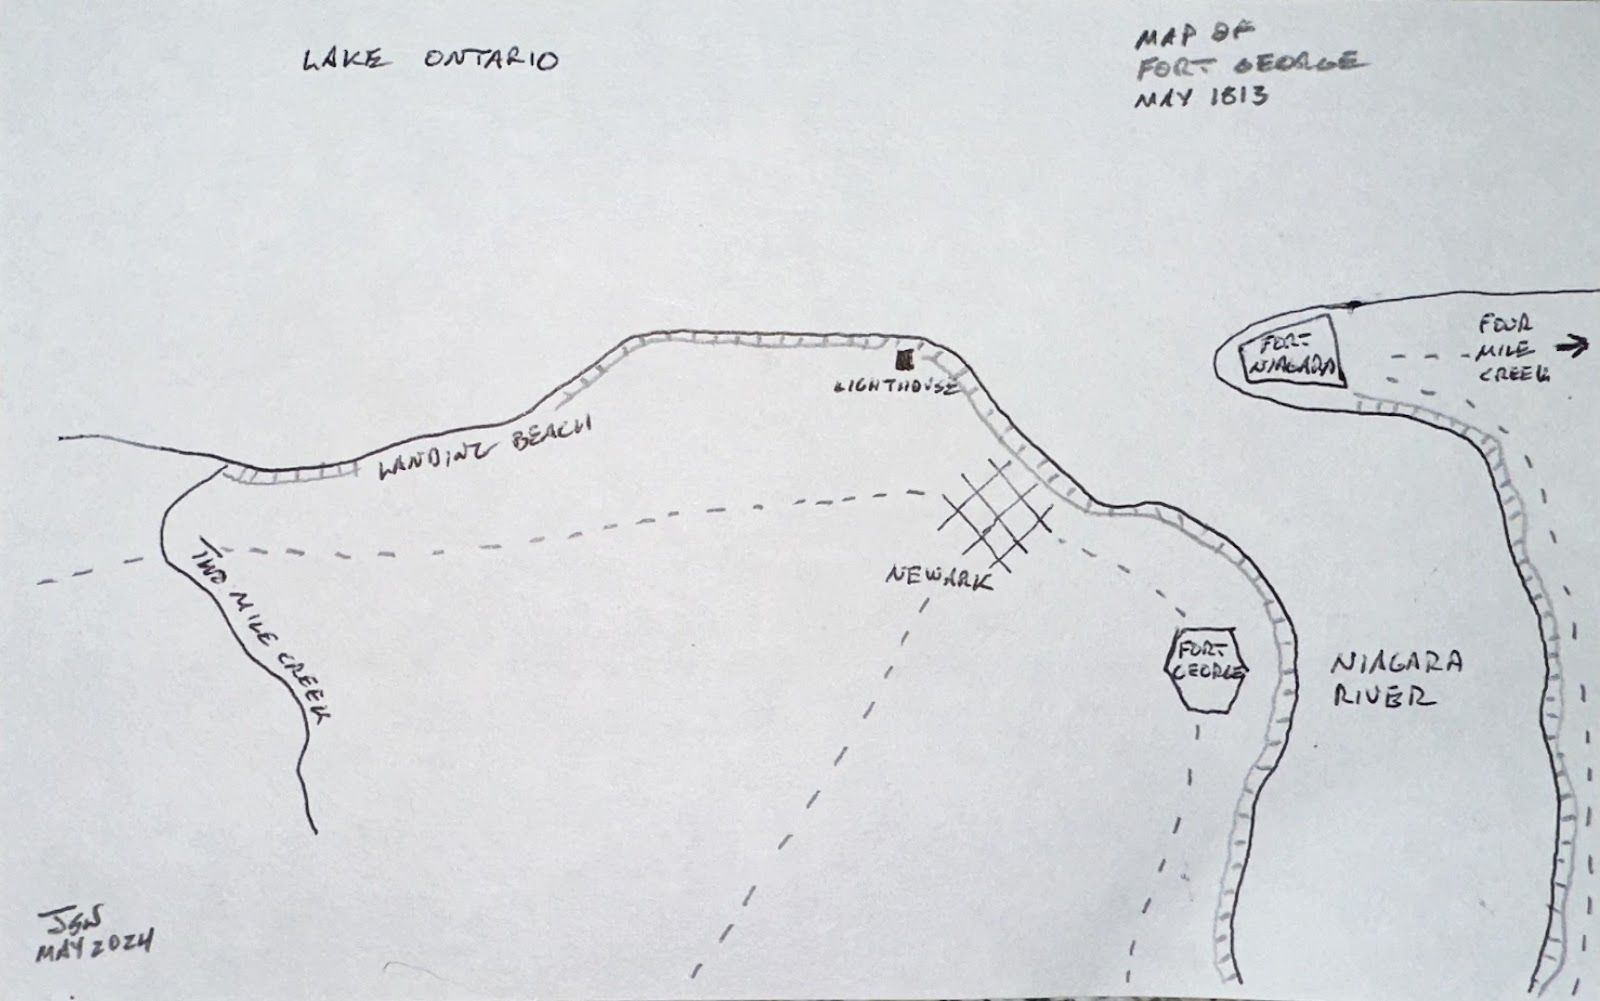 LAKE ONTARIO
MAP OF
FORT GEORGE
MAY 1813
FORT
NIAGARA
FOUR
MILE
CREEK
LIGHTHOUSE
LANDING BEACH
TWO MILE CREEK
NEWARK
FORT
GEORGE
NIAGARA
RIVER
JGW
MAY 2024